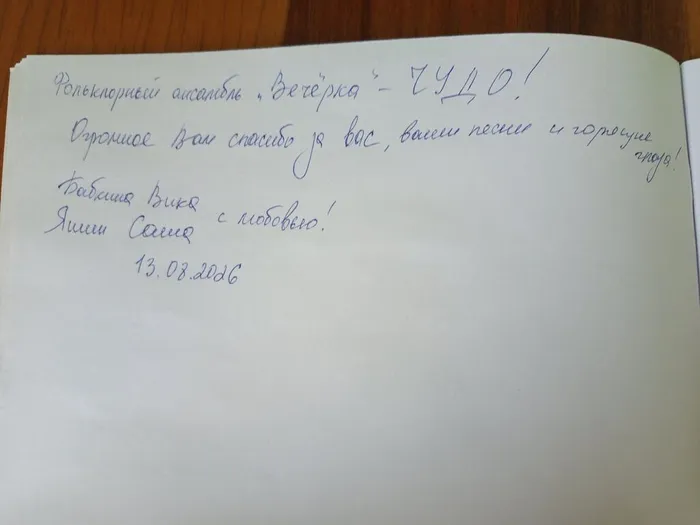 Фольклорный ансамбль „Вечёрка" - ЧУДО!
Огромное Вам спасибо за вас, ваши песни и горящие
глаза!
Бабкина Вика
Яшин Саша с любовью!
13.08.2026